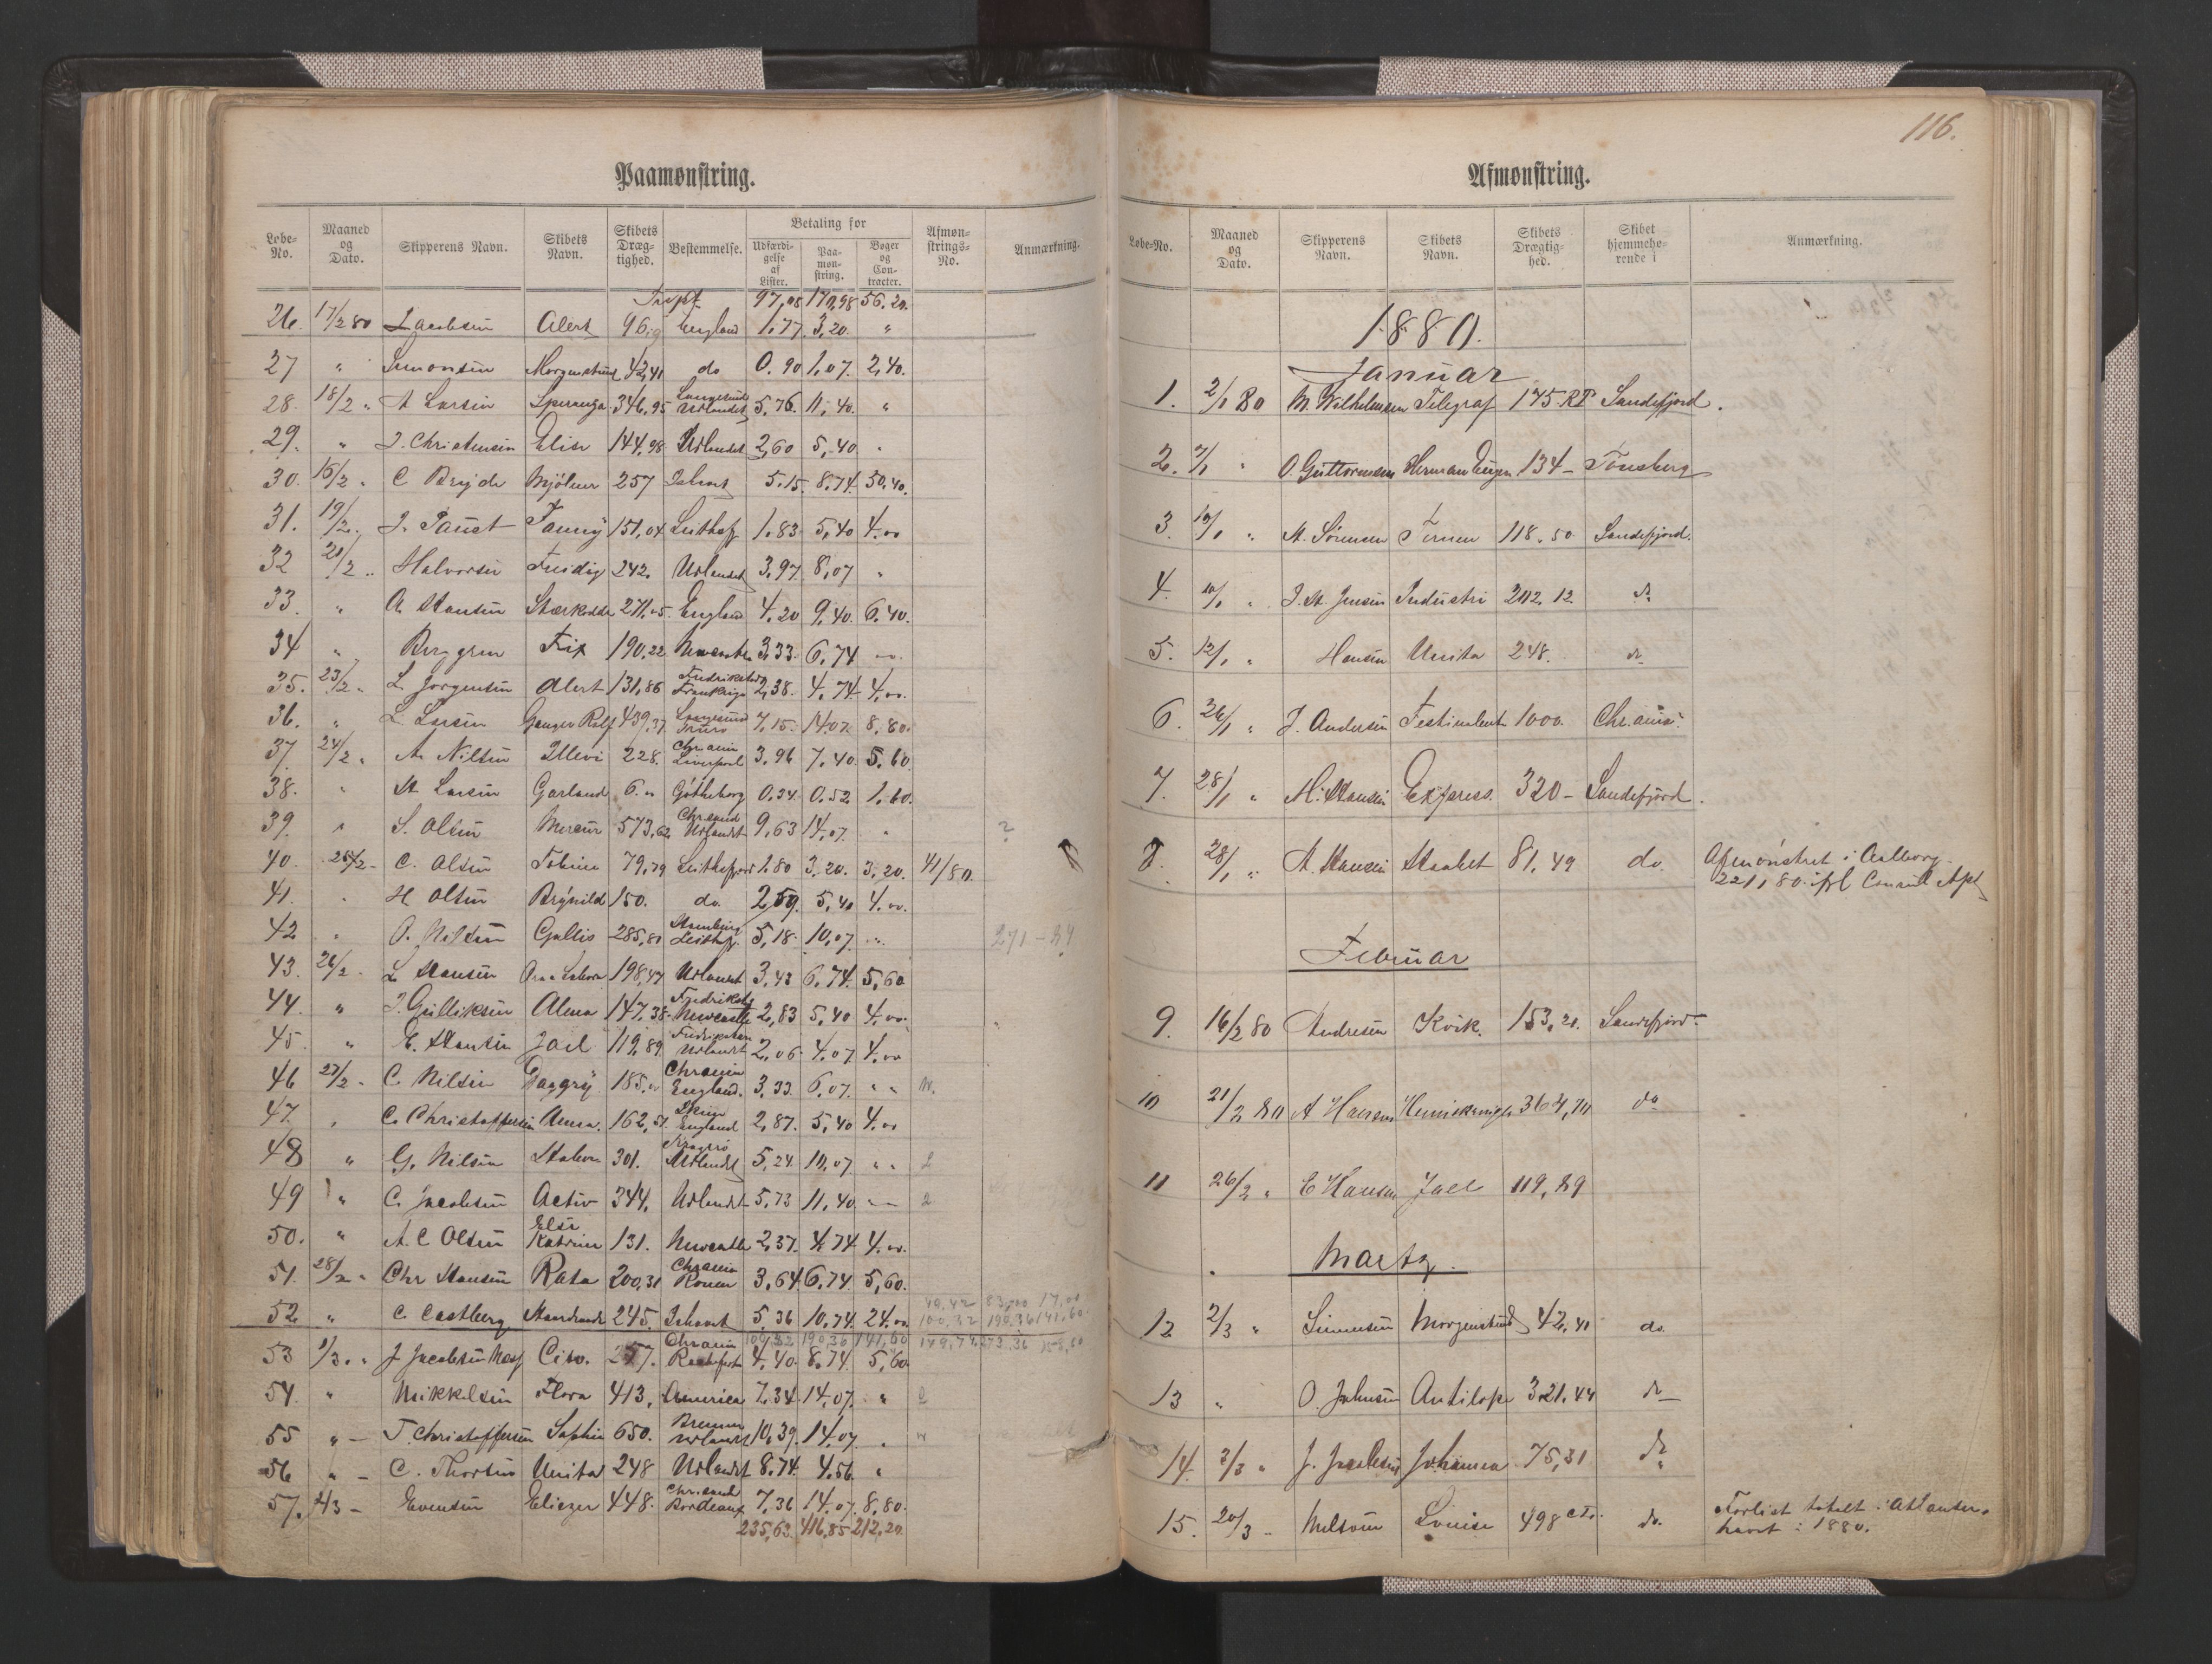 Paamønstring.
Løbe-No. Maaned og Dato. Skipperens Navn. Skibets Navn. Skibets Dræg-tighed. Bestemmelse. Betaling for Udfærdi-gelse af Lister. Paa-møn-string. Bøger og Con-tracter. Afmøn-strings-No. Anmærkning.
97,08 170,98 56,20.
26. 17/2 80 Jacobsen Alert 96, England 1.77. 3,20. "
27 " Simonsen Morgenstund 42,41 do 0.90 1,07. 2,40.
28. 18/2 " A Larsen Speranza 346,95 Langesund Udlandet 5,76. 11,40. "
29. " J. Christensen Elise 144,98 Udlandet 2,60 5,40 "
30. 16/2 " C Bryde Mjölner 257 Ishavet 5,15. 8,74. 30,40.
31. 19/2 " J. Faust Fanny 151,04 Leithef 1,83 5,40 4.00
32 20/2 " Halvorsen Freidig 242. Udlandet 3,97. 8,07 "
33. " A Hansen Stærkodder 271,05. England 4,20 9,40. 6,40.
34 " Berggren Frix 190,22 Newcastle 3,33. 6,74
35. 23/2 " L Jørgensen Alert 131,86 Fredrikstad Frankrige 2,38. 4,74 4,00.
36. " L Larsen Ganger Rolf 439,37 Langesund Truro 7,15. 14,07. 8,80.
37. 24/2 " A. Nilsen Illevi 228. Chrania Liverpool 3,96 7,40. 5,60
38. " A Larsen Garland 6. " Gøtheborg 0,34. 0,52 1,60.
39. " S. Olsen Mercur 573,62 Chrsand Udlandet 9,63 14,07. "
40. 25/2 - C. Olsen Tobine 79,79 Leithefjord 1,80 3,20. 3,20. 41/80.
41. " H Olsen Brynild 150. do. 2,59. 5,40 4.00.
42 " O. Nilsen Gallis 285,81 Hamburg Leithef 5,18. 10,07. 271-89
43. 26/2 - L Hansen 198,47 Udlandet 3,43 6,74. 5,60
44. " J. Gulliksen Alma 147,38. Fredrikstad Newcastle 2,83 5,40 4,00.
45. " E. Hansen Jael 119,89. Fredrikshavn Udlandet 2,06. 4,07. 4,00
46 27/2 - C. Nilsen Daggry 185. Chrania England. 3,33. 6,07. " "
47. " C. Christoffersen Anna. 162,51. Skien England 2,87. 5,40 4.00
48 " G. Nilsen Hakon 301. Kragerö Udlandet 5,24. 10,07 " " 2
49 " C. Jacobsen Activ 344, Udlandet 5,73 11,40. 2
50. " A. C Olsen Else Katrine 131. Newcastle 2,37. 4,74 4.00.
51. 28/2 " Chr Hansen Rata 200,31 Chrania Rouen 3,64. 6,74. 5,60.
52. " C. Castberg Haardraade 245. Ishavet 5,36 10,74. 24.00
53 1/3. " J Jacobsen Ciro. 257. Chrania Rochefort 4,40. 8,74. 5,60.
54. " Mikkelsen Flora 413, America 7,34. 14,07. " 2
55 " - T. Christoffersen Sophie 650. Bremen Udlandet 10,39. 14,07. "
56 " - C. Thorsen Unita 248 Udlandet 8.74. 4.56. "
57. 2/3 - Evensen Eliezer 448. Chrsand Bordeaux 7,36 14,07. 8,80.
235,63. 416,85 212,20.
116.
Afmønstring.
Løbe-No. Maaned og Dato. Skipperens Navn. Skibets Navn. Skibets Drægtig-hed. Skibet hjemmehø-rende i Anmærkning.
1880.
Januar
1. 2/1 80 M. Wilhelmsen Telegraf 175. RT Sandefjord.
2. 7/1 " O. Guttormsen Herman Eugen 134 - Tønsberg
3. 10/1 " A. Sørensen Ternen 118.50 Sandefjord.
4. 10/1 " J. A. Jensen Industri 202.12. do
5. 12/1 " Hansen Unita 248. do
6. 26/1 " J. Andersen Festina lente 1000. Chr.ania.
7. 28/1 " M. Hansen Express. 320 - Sandefjord.
8. 28/1 " A. Hansen Haabet 81,49 do. Afmønstret i Aalborg
22/1 80. ifl Consul Apt
Februar
9. 16/2 80 Andresen Kvik. 153,21. Sandefjord.
10 21/2 80 A Hansen 364,70 do
11 26/2 " E Hansen Jael 119,89
Martz.
12 2/3 " Simonsen Morgenstund 42,41 do.
13 " O. Johnsen Antilope 321.44 do
14. 3/3 " J. Jacobsen Johanna 75,31 do
15. 20/3 - Melsom Lovise 498 ct. do. Forlist totalt i Atlanter-
havet i 1880.